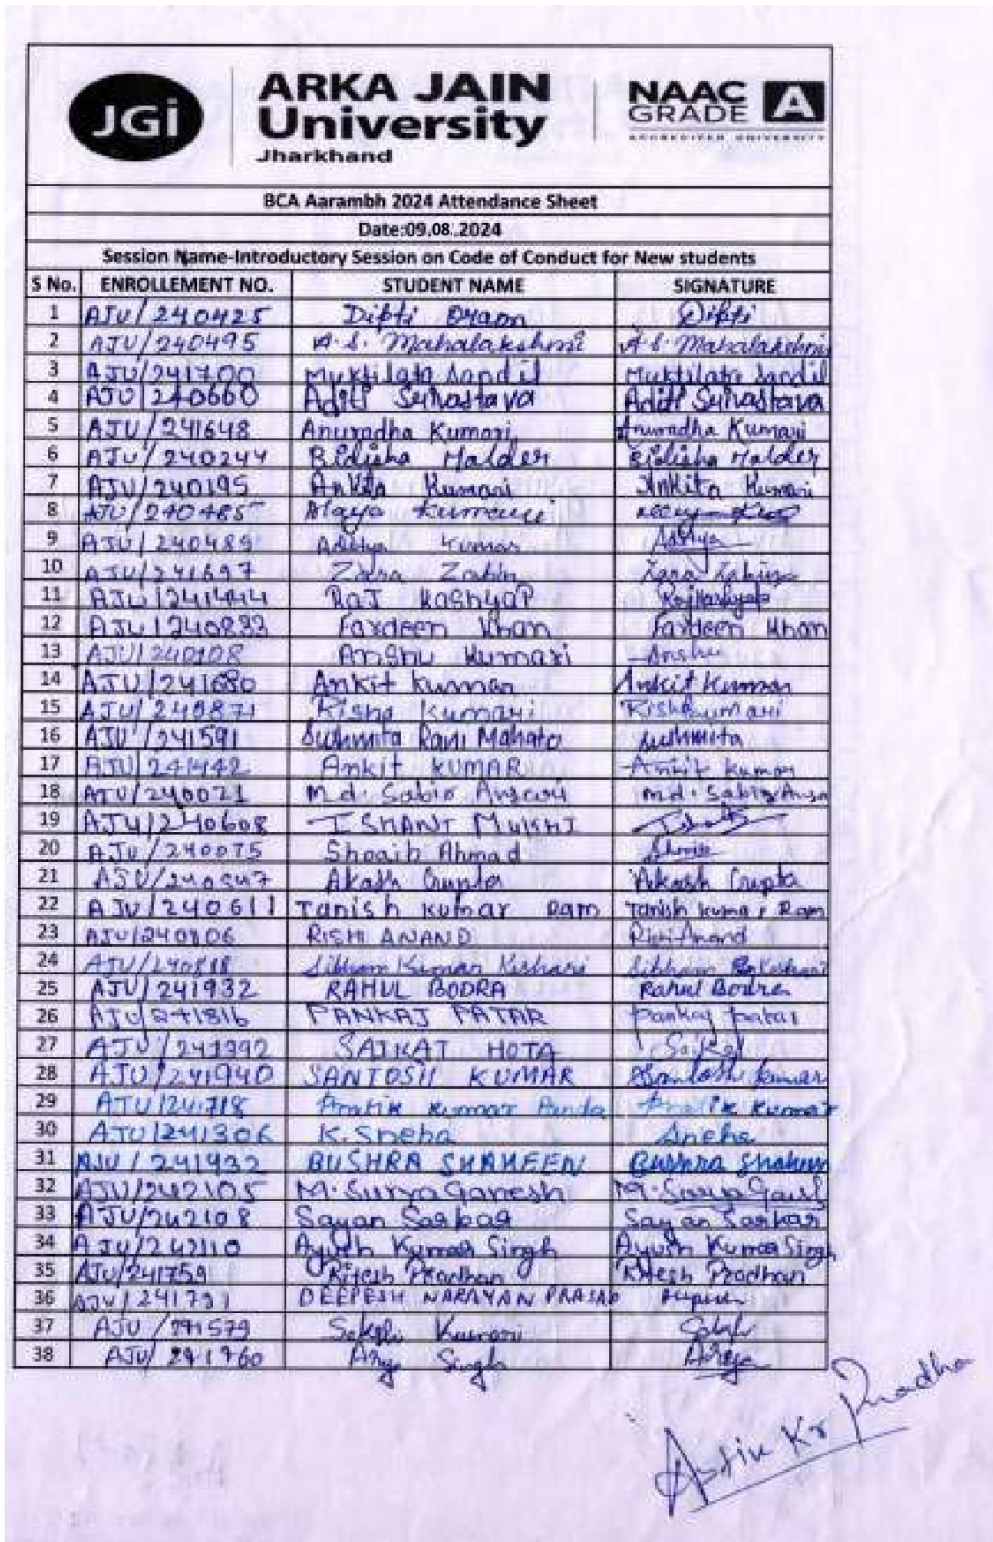 JGi
ARKA JAIN
University
Jharkhand
NAAC
GRADE A
ACCREDITED UNIVERSITY
BCA Aarambh 2024 Attendance Sheet
Date:09.08.2024
Session Name-Introductory Session on Code of Conduct for New students
S No. ENROLLEMENT NO. STUDENT NAME SIGNATURE
1 AJU/240425 Dipti Oraon Dipti
2 AJU/240495 A.S. Mahalakshmi A.S. Mahalakshmi
3 AJU/241700 Muktilata Sandil Muktilata Sandil
4 AJU/240660 Aditi Srivastava Aditi Srivastava
5 AJU/241648 Anuradha Kumari Anuradha Kumari
6 AJU/240244 Bidisha Halder Bidisha Halder
7 AJU/240195 Ankita Kumari Ankita Kumari
8 AJU/240485 Kumari
9 AJU/240489 Aditya Kumar Aditya
10 AJU/241697 Zara Zabin
11 AJU/241444 RAJ KASHYAP Raj Kashyap
12 AJU/240833 Fardeen Khan Fardeen Khan
13 AJU/240108 Anshu Kumari Anshu
14 AJU/241680 Ankit Kumar Ankit Kumar
15 AJU/240871 Kumari
16 AJU/241591 Sushmita Rani Mahato Sushmita
17 AJU/241442 Ankit KUMAR Ankit Kumar
18 AJU/240021 Md. Sabir Ansari Md. Sabir Ansa
19 AJU/240608 ISHANT MUKHI
20 AJU/240075 Shoaib Ahmad
21 Akash Gupta Akash Gupta
22 AJU/240611 Tanish Kumar Ram Tanish Kumar Ram
23 AJU/240806 RISHI ANAND Rishi Anand
24 AJU/240818 Kumar
25 AJU/241932 RAHUL BODRA Rahul Bodra
26 AJU/241816 PANKAJ PATAR Pankaj Patar
27 AJU/241392 SAIKAT HOTA
28 AJU/241940 SANTOSH KUMAR Santosh Kumar
29 AJU/241718 Pratik Kumar Panda Pratik Kumar
30 AJU/241306 K. Sneha Sneha
31 AJU/241932 BUSHRA SHAHEEN Bushra Shaheen
32 AJU/242105 M. Surya Ganesh M. Surya
33 AJU/242108 Sayan Sarkar Sayan Sarkar
34 AJU/242110 Ayush Kumar Singh Ayush Kumar Singh
35 AJU/241759 Ritesh Pradhan Ritesh Pradhan
36 AJU/241791 DEEPESH NARAYAN PRASAD
37 AJU/241579 Kumari
38 AJU/241760 Singh
Kr Pradha